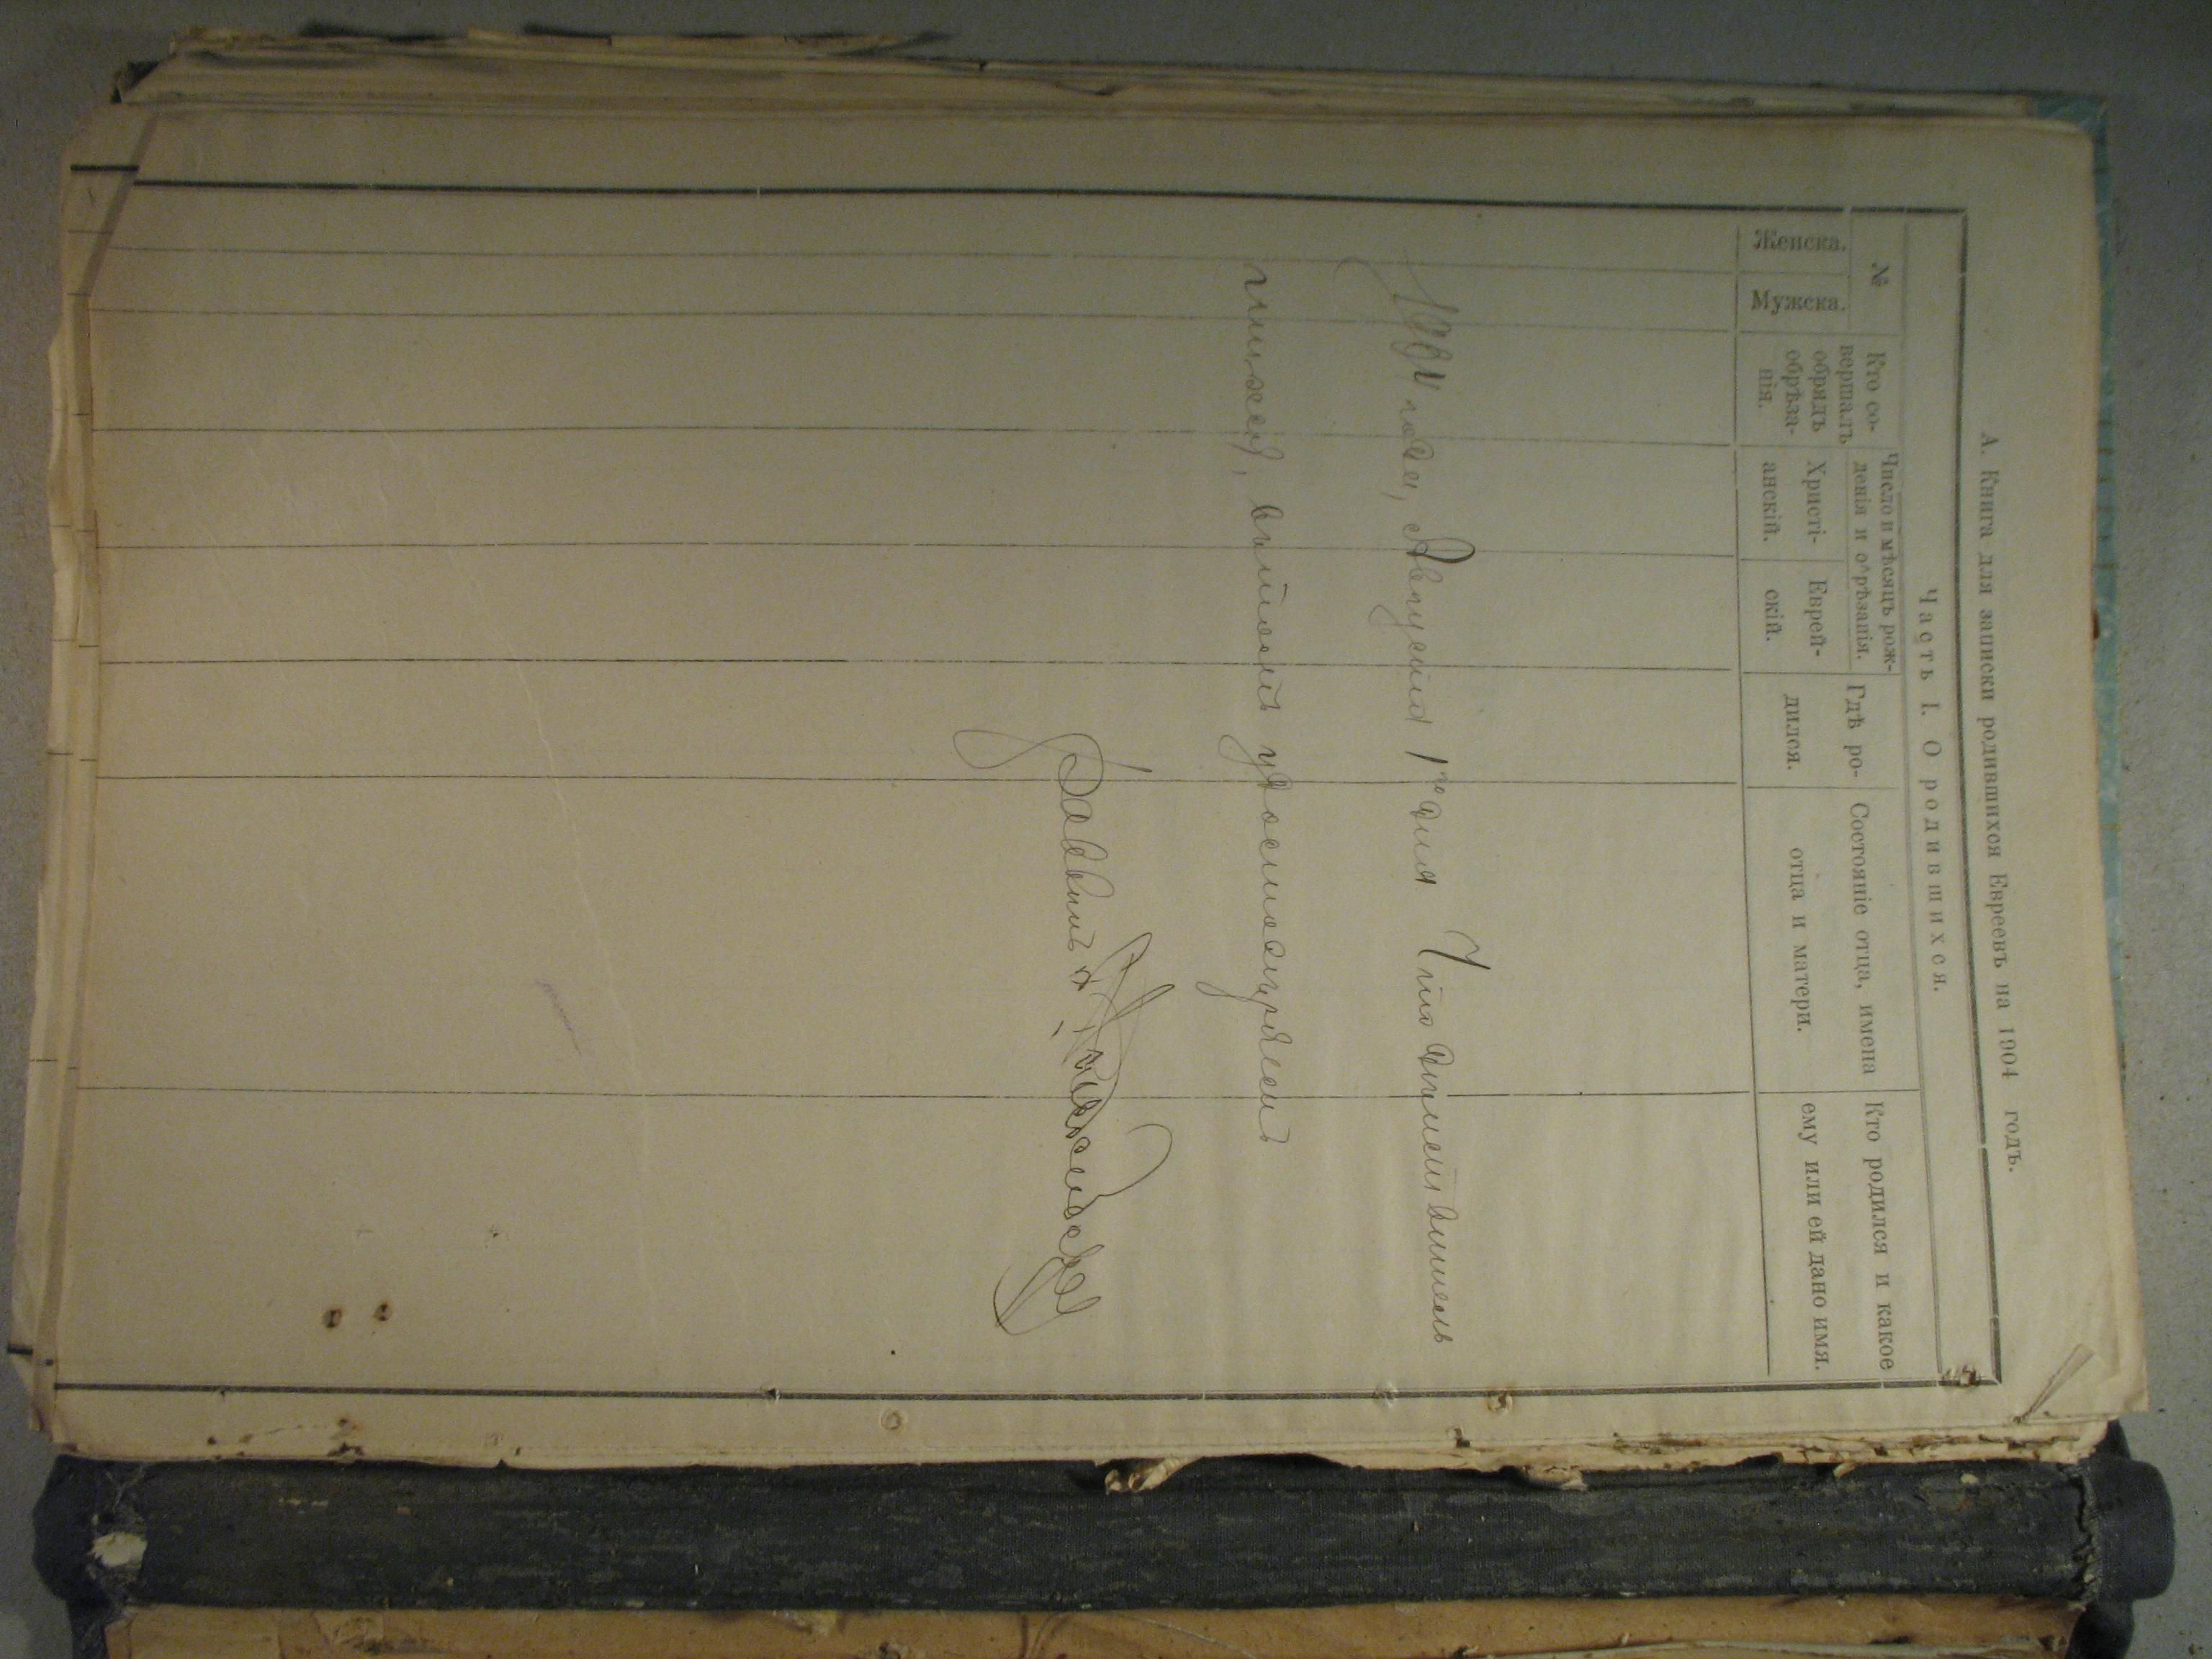 А. Книга для записки родившихся Евреевъ на 1904 годъ.
Часть I. О родившихся.
№
Женска.
Мужска.
Кто со-
вершалъ
обрядъ
обрѣза-
нія.
Число и мѣсяцъ рож-
денія и обрѣзанія.
Христі-
анскій.
Еврей-
скій.
Гдѣ ро-
дился.
Состояніе отца, имена
отца и матери.
Кто родился и какое
ему или ей дано имя.
1904 года, Августа 1го дня
въ томъ удостовѣряемъ
Раввинъ